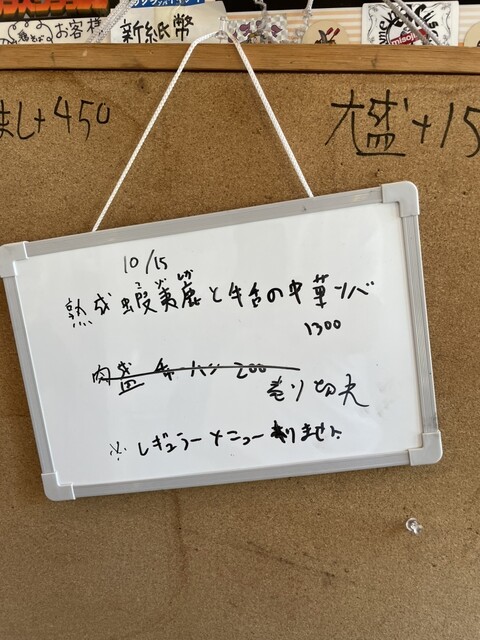 お客様
新紙幣
misoji
まし+450
大盛+15
10/15
熟成蝦夷鹿と牛舌の中華ソバ
えぞしか
1300
肉盛チャーハン 200
売り切れ
※レギュラーメニュー有りません